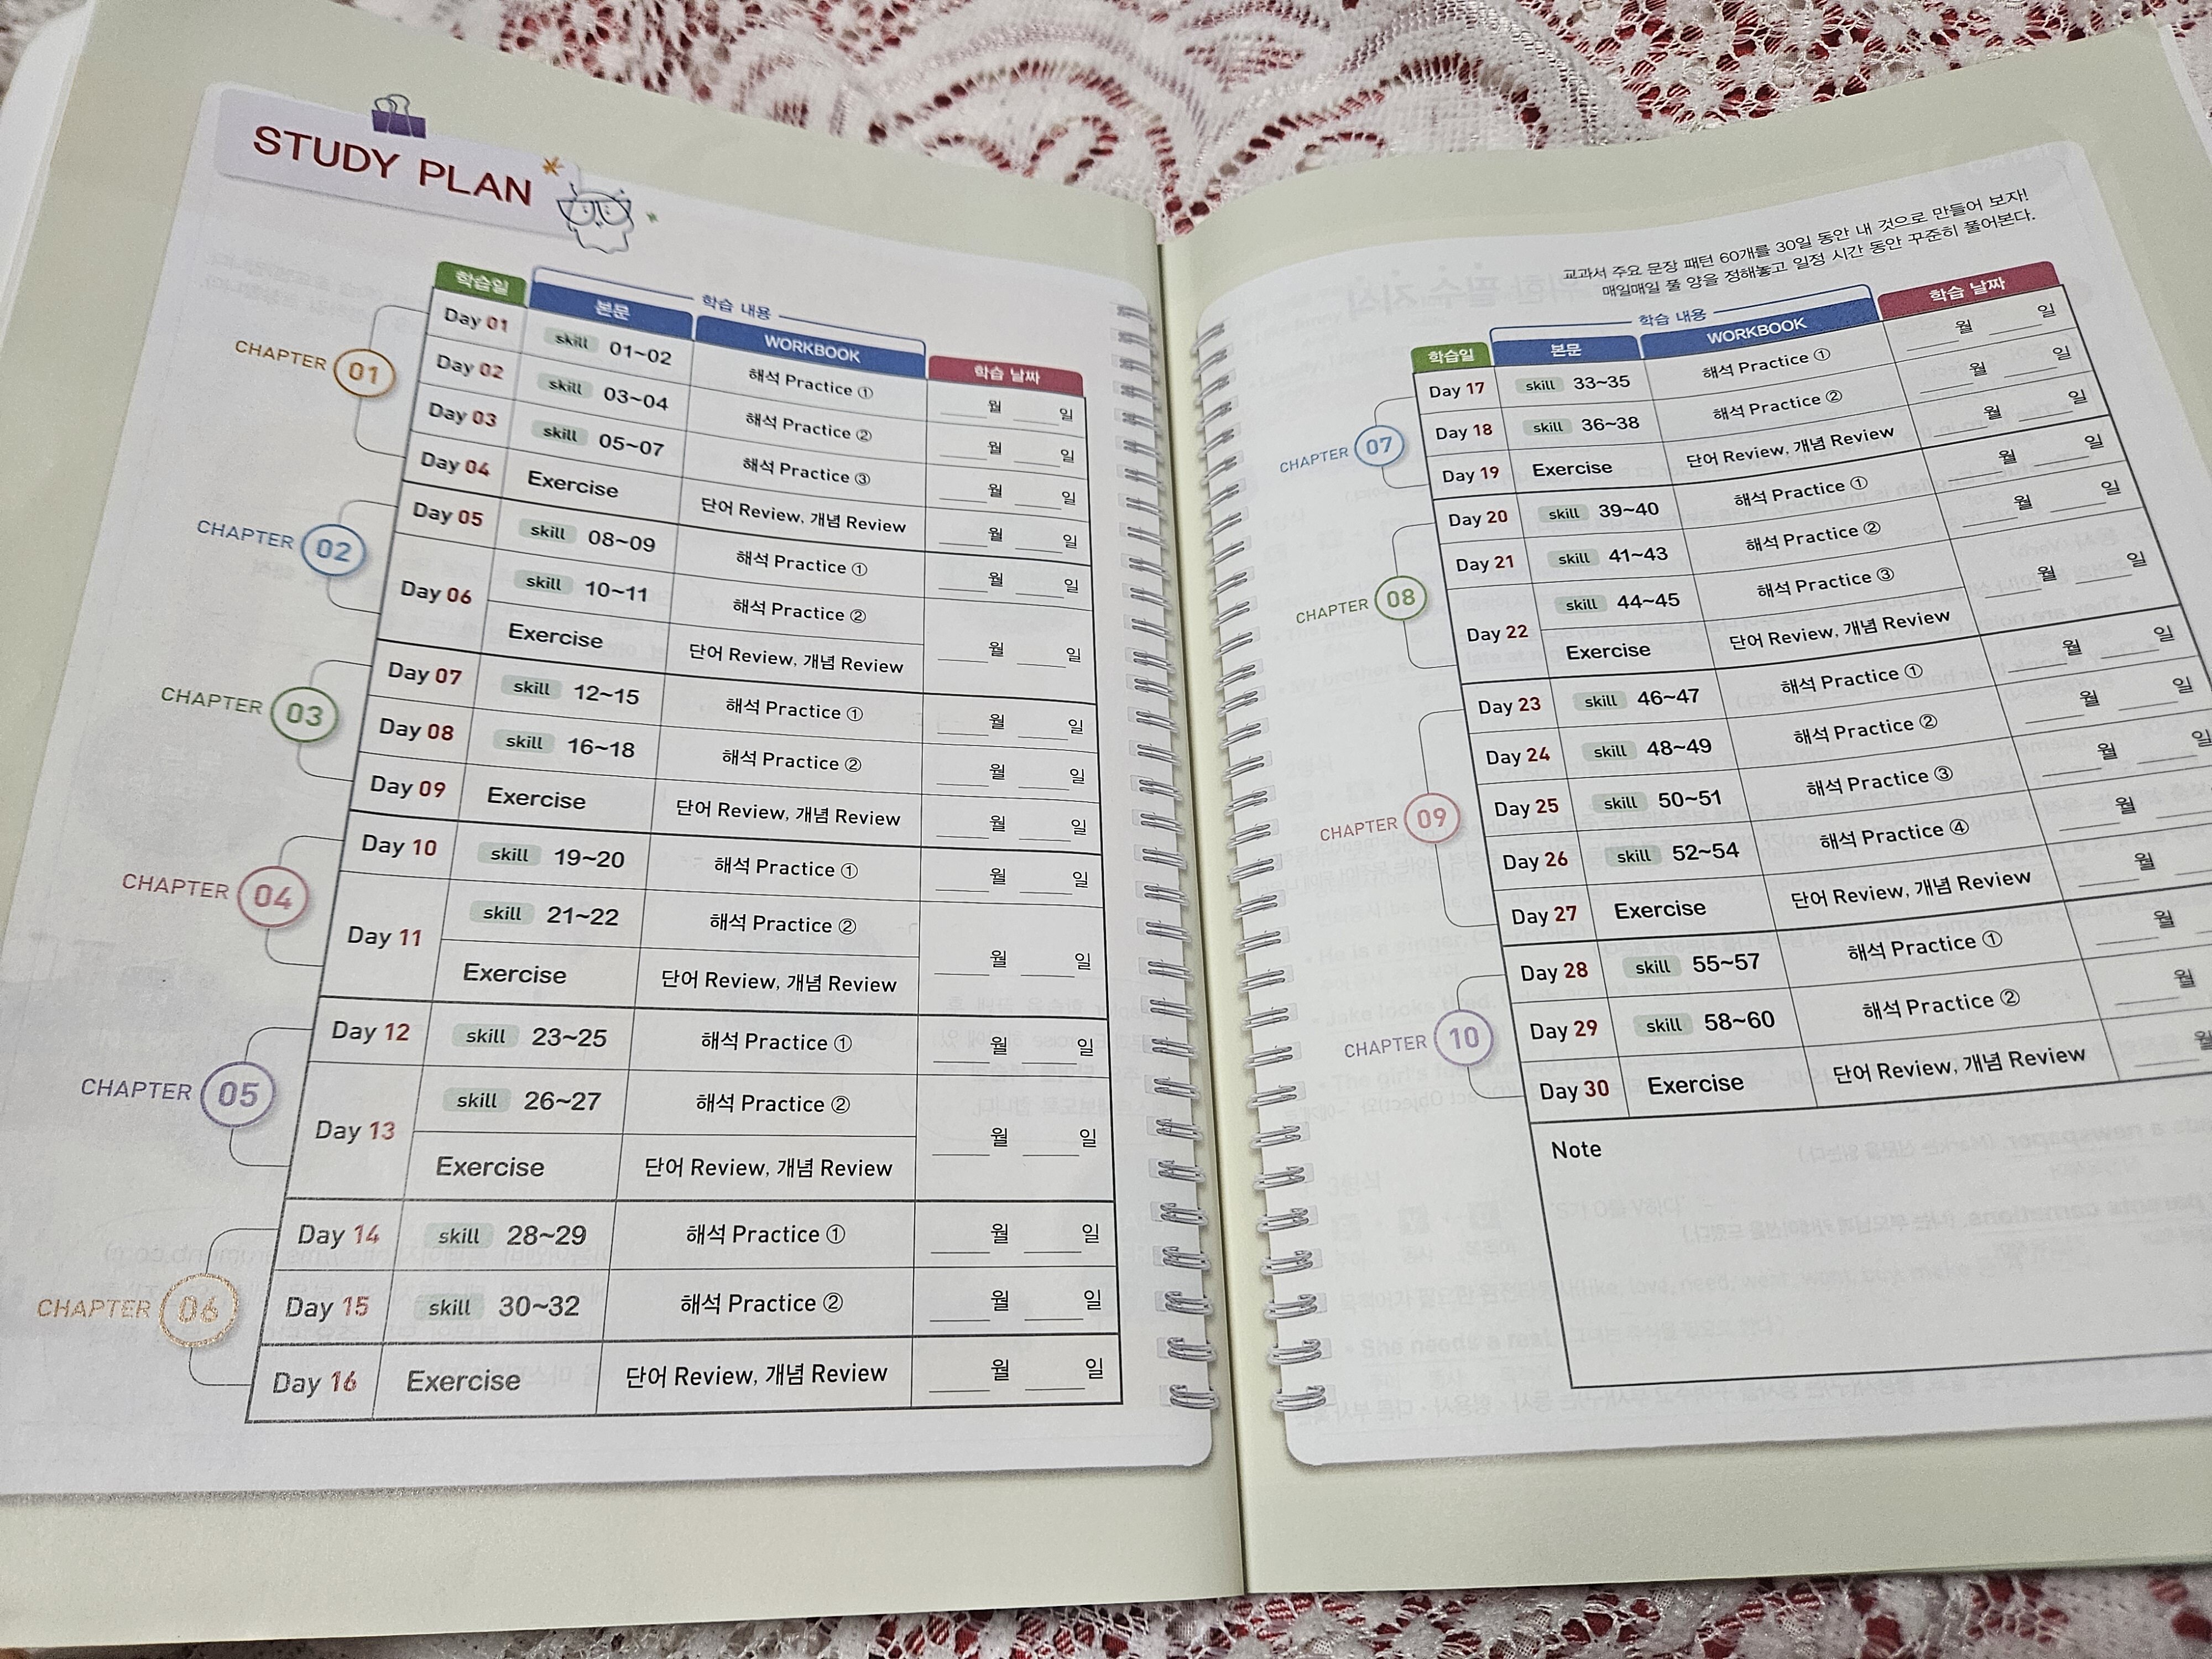 STUDY PLAN
학습일 학습 내용 학습 날짜
본문 WORKBOOK
CHAPTER 01
Day 01 skill 01~02 해석 Practice ① 월 일
Day 02 skill 03~04 해석 Practice ② 월 일
Day 03 skill 05~07 해석 Practice ③ 월 일
Day 04 Exercise 단어 Review, 개념 Review 월 일
CHAPTER 02
Day 05 skill 08~09 해석 Practice ① 월 일
Day 06 skill 10~11 해석 Practice ② 월 일
Exercise 단어 Review, 개념 Review
CHAPTER 03
Day 07 skill 12~15 해석 Practice ① 월 일
Day 08 skill 16~18 해석 Practice ② 월 일
Day 09 Exercise 단어 Review, 개념 Review 월 일
CHAPTER 04
Day 10 skill 19~20 해석 Practice ① 월 일
Day 11 skill 21~22 해석 Practice ② 월 일
Exercise 단어 Review, 개념 Review
CHAPTER 05
Day 12 skill 23~25 해석 Practice ① 월 일
Day 13 skill 26~27 해석 Practice ② 월 일
Exercise 단어 Review, 개념 Review
CHAPTER 06
Day 14 skill 28~29 해석 Practice ① 월 일
Day 15 skill 30~32 해석 Practice ② 월 일
Day 16 Exercise 단어 Review, 개념 Review 월 일
교과서 주요 문장 패턴 60개를 30일 동안 내 것으로 만들어 보자!
매일매일 풀 양을 정해놓고 일정 시간 동안 꾸준히 풀어본다.
학습일 학습 내용 학습 날짜
본문 WORKBOOK
CHAPTER 07
Day 17 skill 33~35 해석 Practice ① 월 일
Day 18 skill 36~38 해석 Practice ② 월 일
Day 19 Exercise 단어 Review, 개념 Review 월 일
CHAPTER 08
Day 20 skill 39~40 해석 Practice ① 월 일
Day 21 skill 41~43 해석 Practice ② 월 일
Day 22 skill 44~45 해석 Practice ③ 월 일
Exercise 단어 Review, 개념 Review
CHAPTER 09
Day 23 skill 46~47 해석 Practice ① 월 일
Day 24 skill 48~49 해석 Practice ② 월 일
Day 25 skill 50~51 해석 Practice ③ 월 일
Day 26 skill 52~54 해석 Practice ④ 월
Day 27 Exercise 단어 Review, 개념 Review 월
CHAPTER 10
Day 28 skill 55~57 해석 Practice ① 월
Day 29 skill 58~60 해석 Practice ② 월
Day 30 Exercise 단어 Review, 개념 Review 월
Note